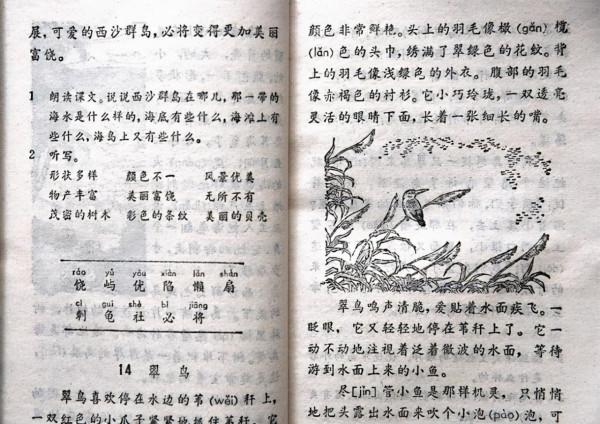 展，可爱的西沙群岛，必将变得更加美丽
富饶。
1 朗读课文。说说西沙群岛在哪儿，那一带的
海水是什么样的，海底有些什么，海滩上有
些什么，海岛上又有些什么。
2 听写。
形状多样 颜色不一 风景优美
物产丰富 美丽富饶 无所不有
茂密的树木 彩色的条纹 美丽的贝壳
ráo yǔ yōu xiàn lǎn shàn
饶 屿 优 陷 懒 扇
cì guī shè bì jiāng
刺 龟 社 必 将
14 翠鸟
翠鸟喜欢停在水边的苇(wěi)秆上，
一双红色的小爪子紧紧地抓住苇秆。它
颜色非常鲜艳。头上的羽毛像橄(gǎn)榄
(lǎn)色的头巾，绣满了翠绿色的花纹。背
上的羽毛像浅绿色的外衣。腹部的羽毛
像赤褐色的衬衫。它小巧玲珑，一双透亮
灵活的眼睛下面，长着一张细长的嘴。
翠鸟鸣声清脆，爱贴着水面疾飞。一
眨眼，它又轻轻地停在苇秆上了。它一
动不动地注视着泛着微波的水面，等待
游到水面上来的小鱼。
尽[jǐn]管小鱼是那样机灵，只悄悄
地把头露出水面来吹个小泡(pào)泡，可